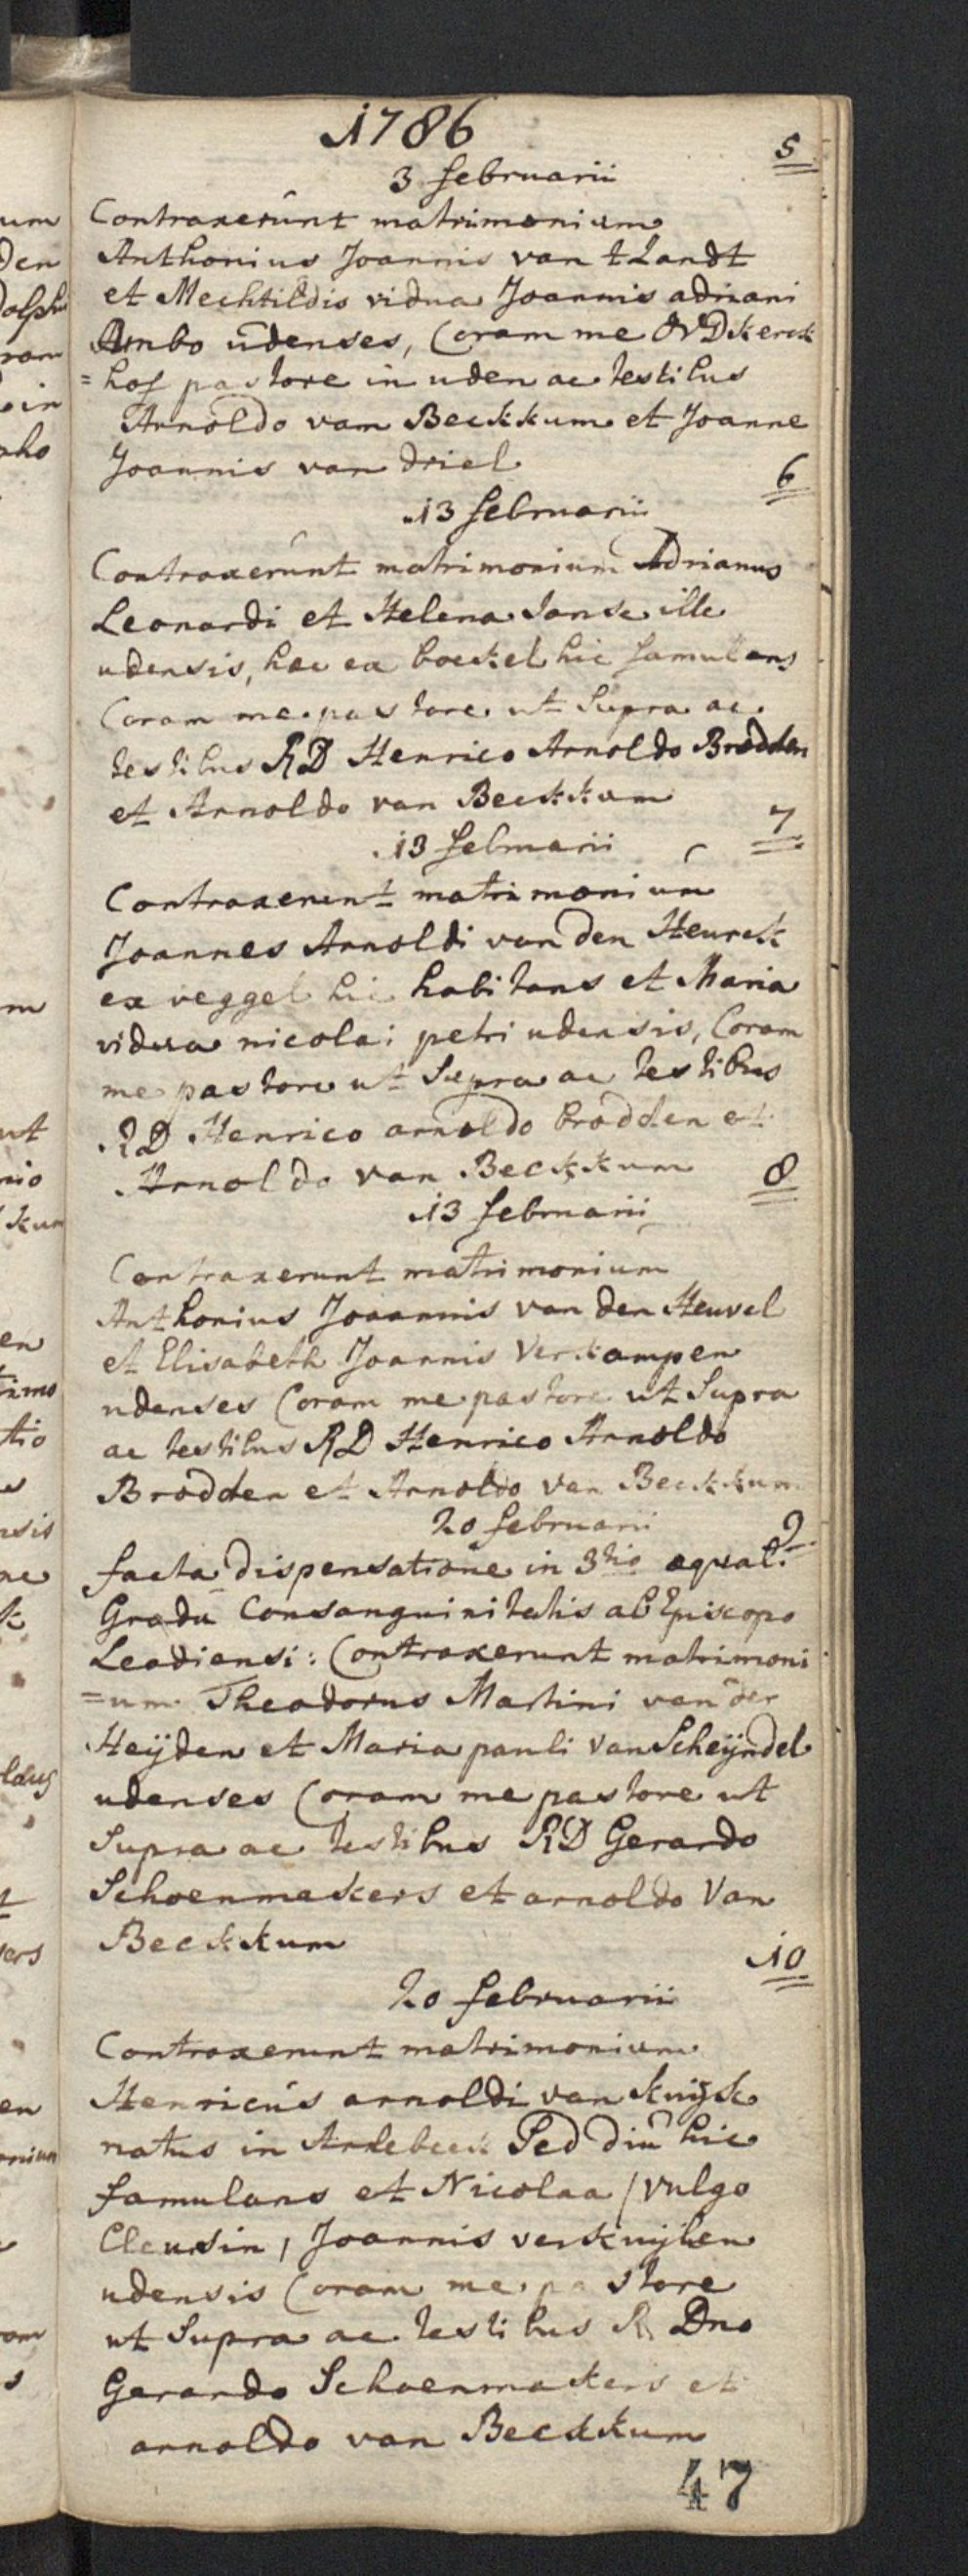 1786
5
3 februarii
Contraxerunt matrimonium
Anthonius Joannis van t Landt
et Mechtildis vidua Joannis adriani
udenses, Coram me kerck
=hof pastore in uden ac testibus
Arnoldo van Beckkum et Joanne
Joannis van driel
6
13 februarii
Contraxerunt matrimonium Adrianus
Leonardi et Helena Janse ille
udensis, hac ex boekel hic famulans
Coram me pastore ut Supra ac
testibus RD Henrico Arnoldo Brodden
et Arnoldo van Beckkum
7
13 februarii
Contraxerunt matrimonium
Joannes Arnoldi van den Heurck
ex veggel hic habitans et Maria
vidua nicolai petri udensis, Coram
me pastore ut Supra ac testibus
RD Henrico arnoldo brodden et
Arnoldo van Beckkum
8
13 februarii
Contraxerunt matrimonium
Anthonius Joannis van den Heuvel
et Elisabeth Joannis Verkampen
udenses Coram me pastore ut Supra
ac testibus RD Henrico Arnoldo
Brodden et Arnoldo van Beckkum
20 februarii
9
facta dispensatione in 3tio aqual:
Gradu Consanguinitatis ab Episcopo
Leodiensi: Contraxerunt matrimoni
=um Theodorus Martini van der
Heÿden et Maria pauli van Scheÿndel
udenses Coram me pastore ut
Supra ac testibus RD Gerardo
Schoenmakers et arnoldo Van
Beckkum
10
20 februarii
Contraxerunt matrimonium
Henricus arnoldi van kuijk
natus in Sed diu hic
famulans et Nicolaa / vulgo
Joannis verkuijlen
udensis Coram me pastore
ut Supra ac testibus R Dno
Gerardo Schoenmakers et
arnoldo van Beckkum
47